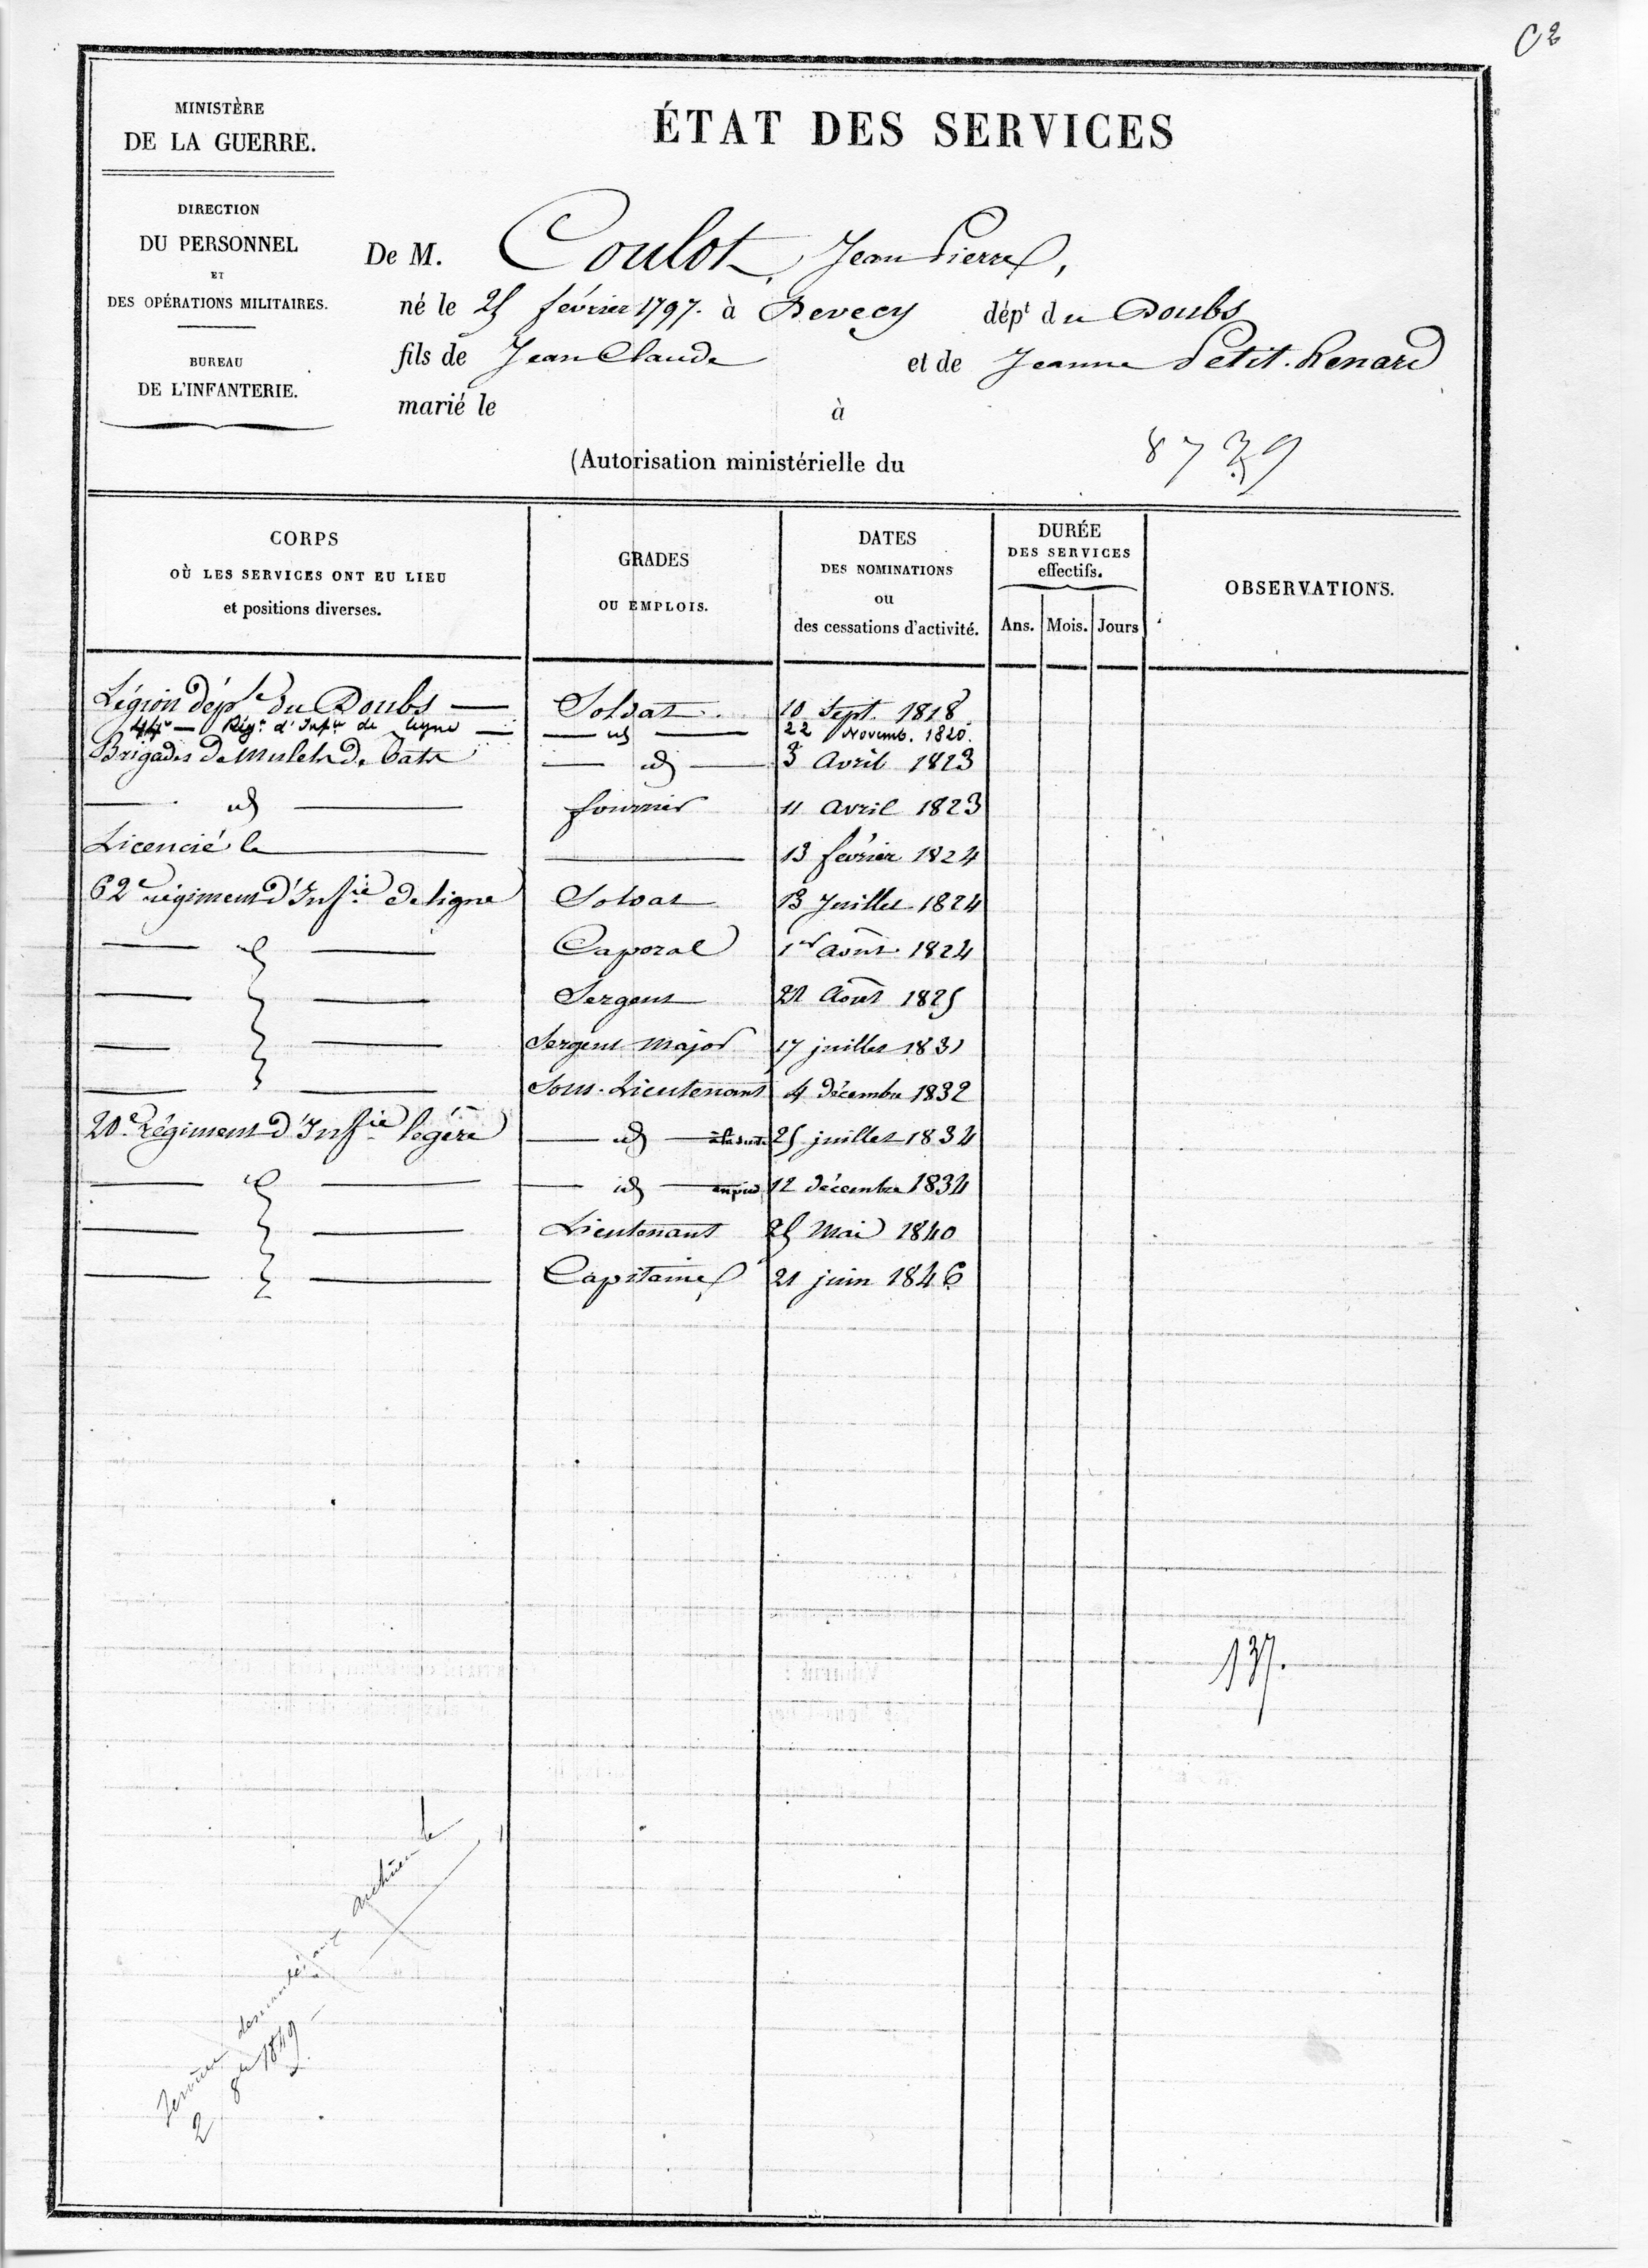 C 2
MINISTÈRE
DE LA GUERRE.
DIRECTION
DU PERSONNEL
ET
DES OPÉRATIONS MILITAIRES.
BUREAU
DE L'INFANTERIE.
ÉTAT DES SERVICES
De M. Coulot, Jean Pierre,
né le 25 février 1797. à Devecy dépt du Doubs
fils de Jean Claude et de Jeanne Petit-Renard
marié le à
(Autorisation ministérielle du
8739
CORPS
OÙ LES SERVICES ONT EU LIEU
et positions diverses.
GRADES
OU EMPLOIS.
DATES
DES NOMINATIONS
ou
des cessations d'activité.
DURÉE
DES SERVICES
effectifs.
Ans. Mois. Jours
OBSERVATIONS.
Légion déple du Doubs — Soldat 10 Sept. 1818
44e — Régt d'Infie de ligne — — id — 22 Novemb. 1820.
Brigades de mulets de bâts — id — 3 Avril 1823
— id — fourrier 11 avril 1823
Licencié le — — 13 février 1824
62e régiment d'Infie de ligne Soldat 13 Juillet 1824
— id — Caporal 1er août 1824
— — Sergent 21 Août 1825
— — Sergent major 17 juillet 1831
— — Sous-Lieutenant 4 décembre 1832
20e régiment d'Infie légère — id — à la suite 25 juillet 1834
— id — — id — en pied 12 décembre 1834
— — Lieutenant 25 Mai 1840
— — Capitaine 21 juin 1846
137.
Services demandés aux archives le
2 8bre 1849.